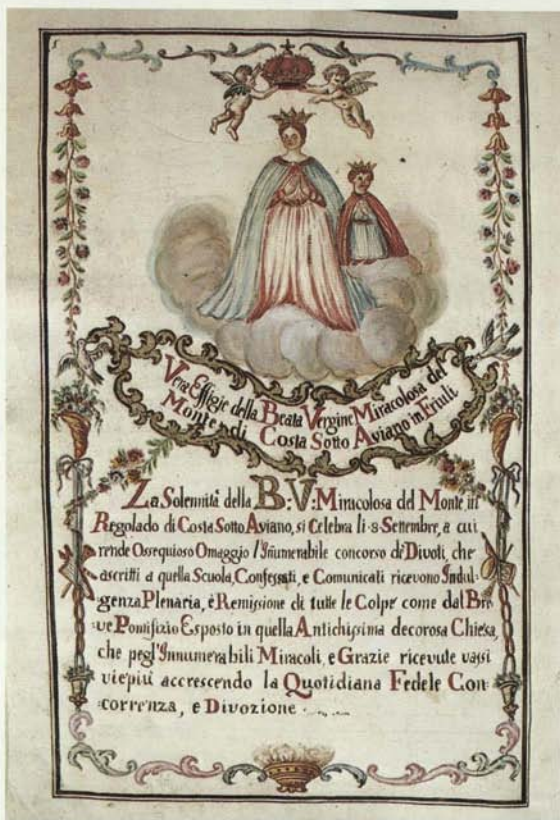 Vera Effigie della Beata Vergine Miracolosa del
Monte di Costa Sotto Aviano in Friuli
La Solennità della B: V: Miracolosa del Monte in
Regolado di Costa Sotto Aviano, si Celebra li 8 Settembre, a cui
rende Ossequioso Omaggio l'Inumerabile concorso de' Divoti, che
ascritti a quella Scuola, Confessati, e Comunicati ricevono Indul-
genza Plenaria, e Remissione di tutte le Colpe come dal Bre
ve Pontifizio Esposto in quella Antichissima decorosa Chiesa,
che pegl'Innumerabili Miracoli, e Grazie ricevute vassi
vie più accrescendo la Quotidiana Fedele Con:
:correnza, e Divozione.